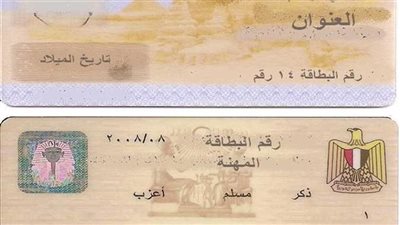 العنوان
تاريخ الميلاد
رقم البطاقة ١٤ رقم
رقم البطاقة ٢٠٠٨/٠٨
المهنة
ذكر مسلم أعزب
١